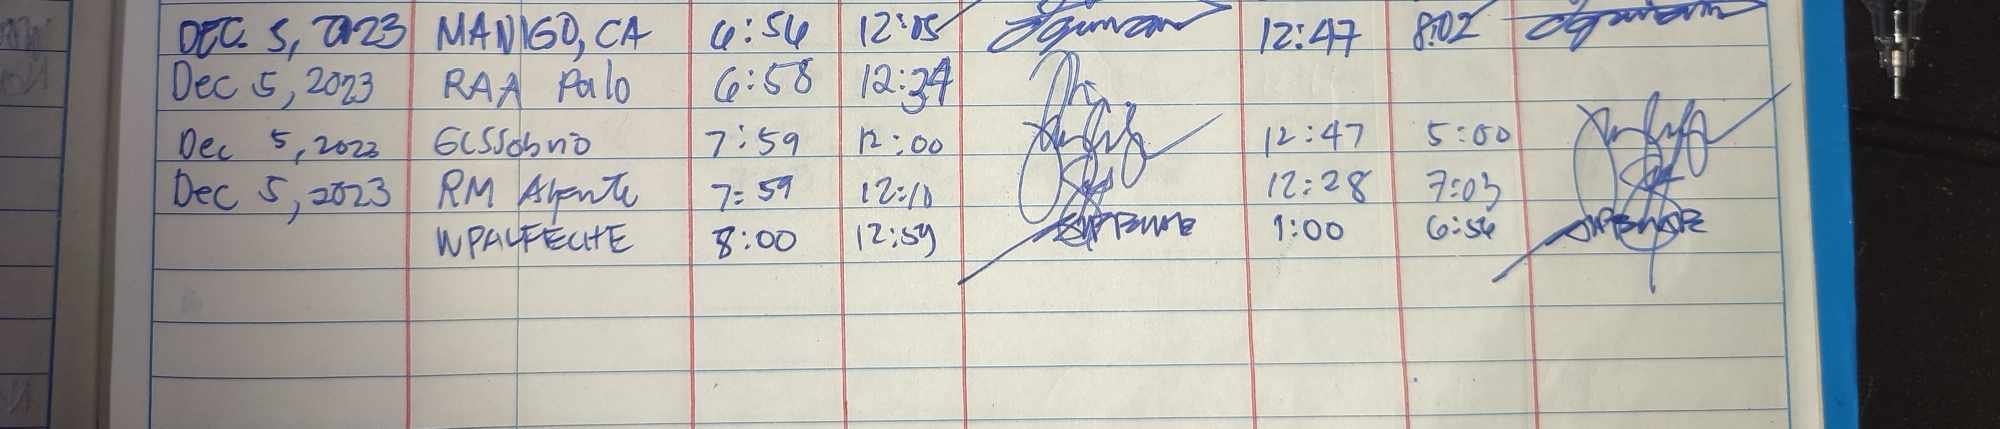 DEC. 5, 2023 MANIGO, CA 6:54 12:05 12:47 8:02
Dec 5, 2023 RAA Palo 6:58 12:34
Dec 5, 2023 GCSSobrio 7:59 12:00 12:47 5:00
Dec 5, 2023 RM Apente 7:59 12:10 12:28 7:03
WPALFECHE 8:00 12:59 1:00 6:54